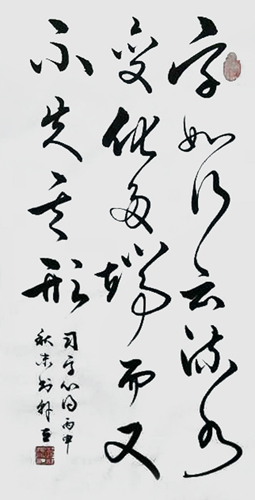 字如行云流水
变化多端而又
不失其形
习字心得丙申
秋末